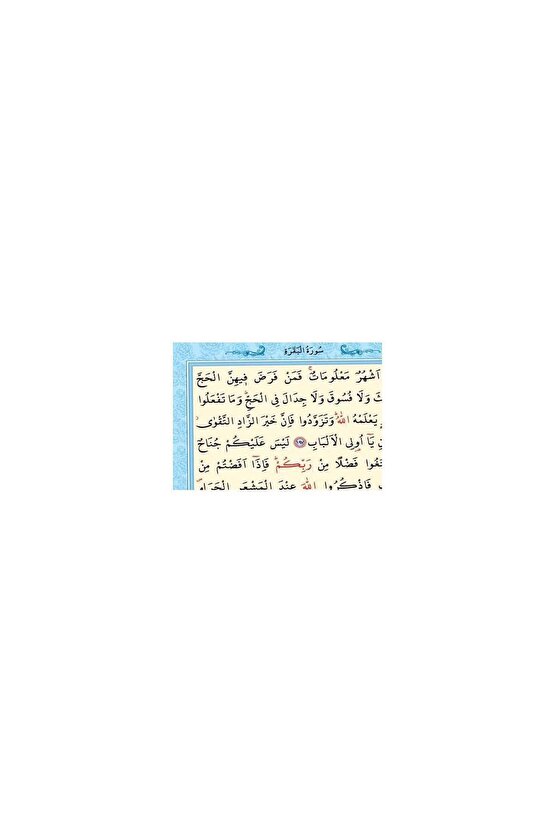 سُورَةُ الْبَقَرَةِ
اَشْهُرٌ مَعْلُومَاتٌۚ فَمَنْ فَرَضَ فِيهِنَّ الْحَجَّ
وَلَا فُسُوقَ وَلَا جِدَالَ فِى الْحَجِّۜ وَمَا تَفْعَلُوا
يَعْلَمْهُ اللّٰهُۜ وَتَزَوَّدُوا فَاِنَّ خَيْرَ الزَّادِ التَّقْوٰىۘ
يَٓا اُو۬لِى الْاَلْبَابِ ﴿١٩٧﴾ لَيْسَ عَلَيْكُمْ جُنَاحٌ
فَضْلًا مِنْ رَبِّكُمْۜ فَاِذَٓا اَفَضْتُمْ مِنْ
فَاذْكُرُوا اللّٰهَ عِنْدَ الْمَشْعَرِ الْحَرَامِۖ